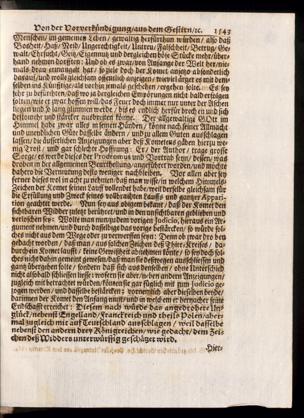 Von der Vorverkündigung/aus dem Gestirn/ꝛc. 1543
Menschen/ im gemeinen Leben/ gewaltig herfürthun würden/ also daß
Boßheit/ Haß/ Neid/ Ungerechtigkeit/ Untreu/ Falschheit/ Betrug/ Ge-
walt/ Ehrsucht/ Geitz/ Eigennutz und dergleichen böse Stücke mehr/ über-
hand nehmen dorfften: Und ob es zwar/ von Anfange der Welt hen nie-
mals draus gemangelt hat/ so zielet doch der Komet
daraus/ und wolle gleichsam offentlich anzeigen/ wieviel ärger es mit den-
selben ins Künfftige/ als vorhin jemals geschehen/ ergehen solte. Es sey
ohn zu befürchten/ daß wo ja dergleichen Empörungen nicht bald erfolgen
solten/ wie es zwar hoffen will/ das Feuer doch immer nur unter der Aschen
liegen und so lang glimmen dürfte/ bis es endlich herfür brech und sich
destomehr und stärcker ausbreiten könte. Der allgewaltige GOtt im
Himmel habe zwar alles in seinen Händen/ könne nach seiner Allmacht
und unendlichen Güte dasselbe ändern/ und zu allem Guten ausschlagen
lassen/ die äuserlichen Anzeigungen aber deß Kometens gäben hierzu we-
nig Trost/ und gar schlechte Hoffnung. Er/ der Author/ trage grosse
Sorge/ es werde dieses der Prodromus und Vortrab seyn/ dessen/ was
vorhin in der allgemeinen Betrachtung/ angeführet worden/ und möchte
dahero die Vermutung desto weniger nachbleiben. Vor allen aber sey
ferner dieses wol in acht zu nehmen/ daß man wisse/ in welchem Himmels-
Zeichen der Komet seinen Lauff vollendet habe/ weil derselbe gleichsam für
die Erfüllung und Zweck seines vollbrachten Lauffs und gantzer Appari-
tion geachtt werde. Nun sey aus obigem bekant/ daß der Komet dem
sichtbaren Widder zuletzt berühret/ und in den unsichtbaren geblieben und
erloschen sey: Wolte man nun aus dem vorigen Judicio, hieraus ein Ar-
gument nehmen/ und durch dasselbige das vorige bestärcken/ so würde sol-
ches nicht aus dem Wege oder zu verwerffen seyn: Denn ob zwar dro ben
gedacht worden/ daß man/ aus solchen Zeichen deß Thier-Kreises/ da-
durch ein Komet laufft/ keine Gewißheit abnehmen könte/ so sey doch sol-
ches nicht dahin gemeint gewesen/ daß man sie deswegen ausschliessen und
gantz übergehen solte/ sondern daß sich aus denselben/ ohne Unterschied
nicht alsobald schliessen liesse: wofern sie aber/ neben andern Anzeigungen/
zugleich mit betrachtet würden/ können sie gar füglich mit zum Judicio ge-
zogen werden/ und dasselbe bestärcken: vornemlich aber dieselben beede/
darinnen der Komet den Anfang nimt/ und in welch em er hernacher seine
Endschafft erreichet: Diesem nach würde das angedeutete Un-
glück/ nebenst Engelland/ Franckreich und theils Polen/ aber-
mal zugleich mit auf Teutschland ausschlagen/ weil dasselbe
nebenst den andern drey Königreichen/ wie gedacht/ dem Zei-
chen deß Widders unterwürffig geschätzet wird.
Hier-